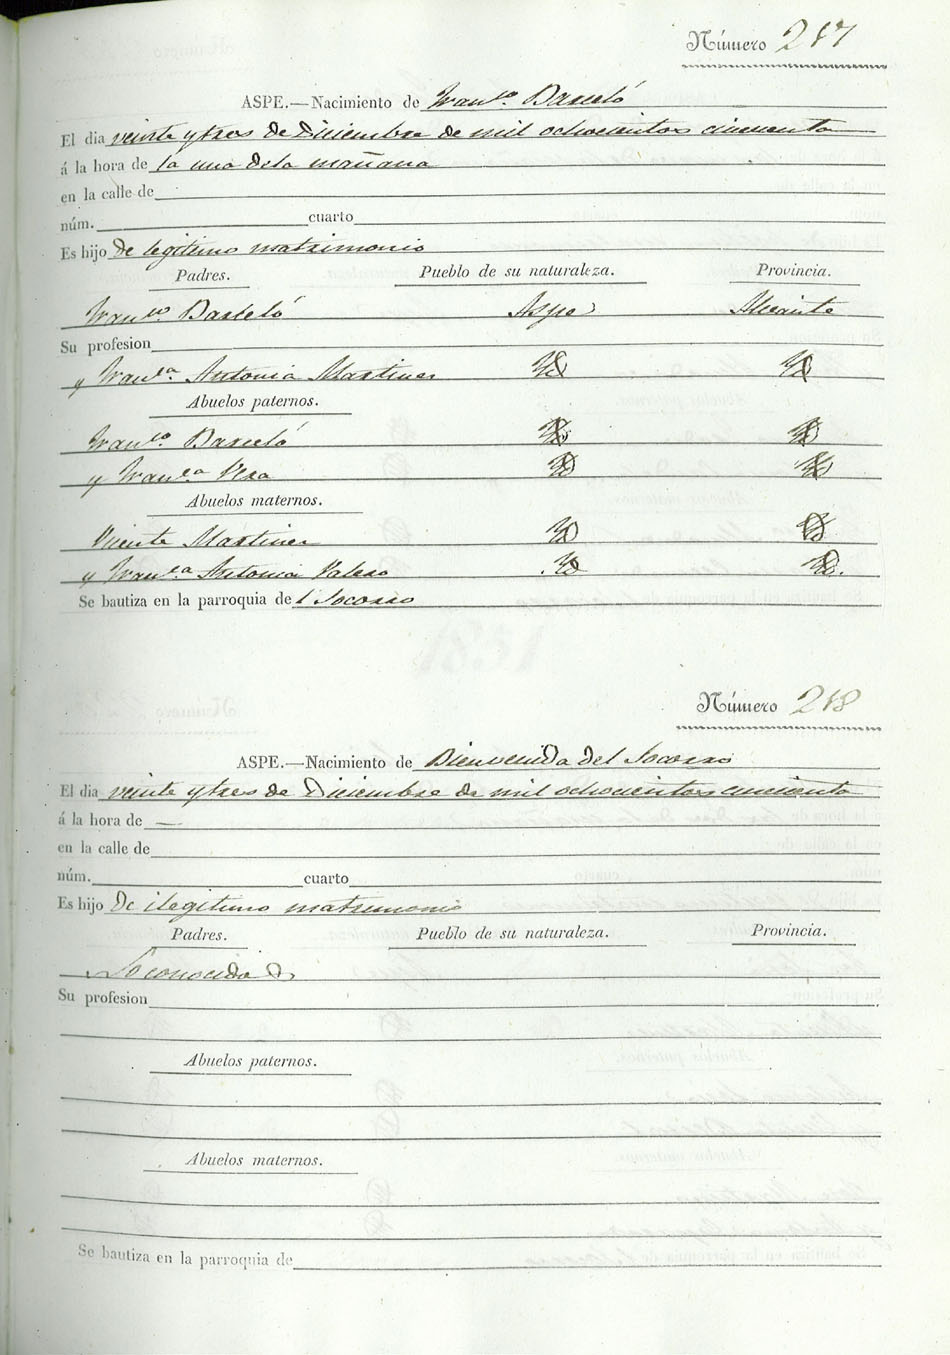 Número 217
ASPE.—Nacimiento de Franco. Barceló
El dia veinte y tres de Diciembre de mil ochocientos cincuenta
á la hora de la una dela mañana
en la calle de
núm. cuarto
Es hijo de legitimo matrimonio
Padres. Pueblo de su naturaleza. Provincia.
Franco Barceló Aspe Alicante
Su profesion
y Franca. Antonia Martinez Yd Yd
Abuelos paternos.
Franco. Barceló Yd Yd
y Franca Vera Yd Yd
Abuelos maternos.
Vicente Martinez Yd Yd
y Franca Antonia Valero Yd Yd.
Se bautiza en la parroquia del Socorro
Número 218
ASPE.—Nacimiento de Bienvenida del Socorro
El dia veinte y tres de Diciembre de mil ochocientos cincuenta
á la hora de —
en la calle de
núm. cuarto
Es hijo De ilegitimo matrimonio
Padres. Pueblo de su naturaleza. Provincia.
Su profesion
Abuelos paternos.
Abuelos maternos.
Se bautiza en la parroquia de